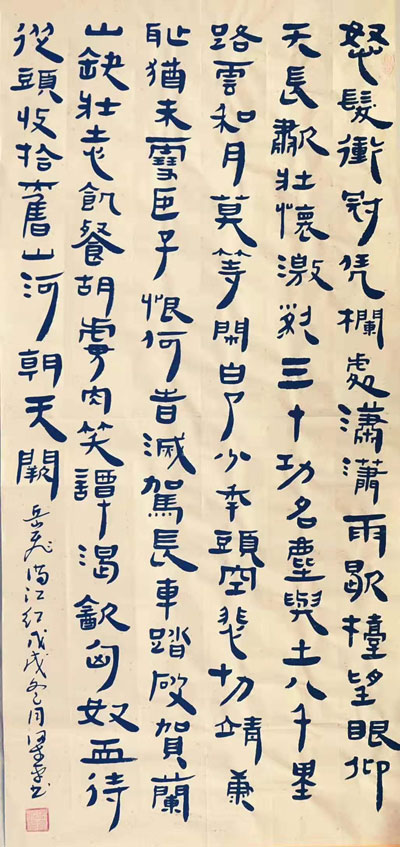 怒髮衝冠凭欄處瀟瀟雨歇檯望眼仰
天長歗壯懷激烈三十功名塵與土八千里
路雲和月莫等閑白了少年頭空悲切靖康
耻猶未雪臣子恨何旹滅駕長車踏破賀蘭
山缺壯志飢餐胡虜肉笑譚渴飲匈奴血待
從頭收拾舊山河朝天闕
岳飛滿江紅戊戌冬月